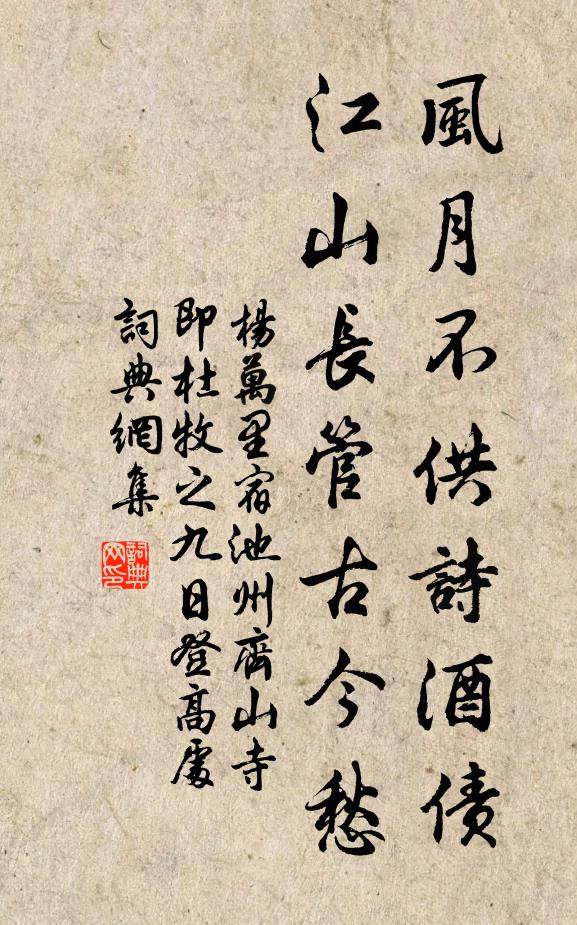 風月不供詩酒債
江山長管古今愁
楊萬里宿池州齊山寺
即杜牧之九日登高處
詞典網集
詞典
网印